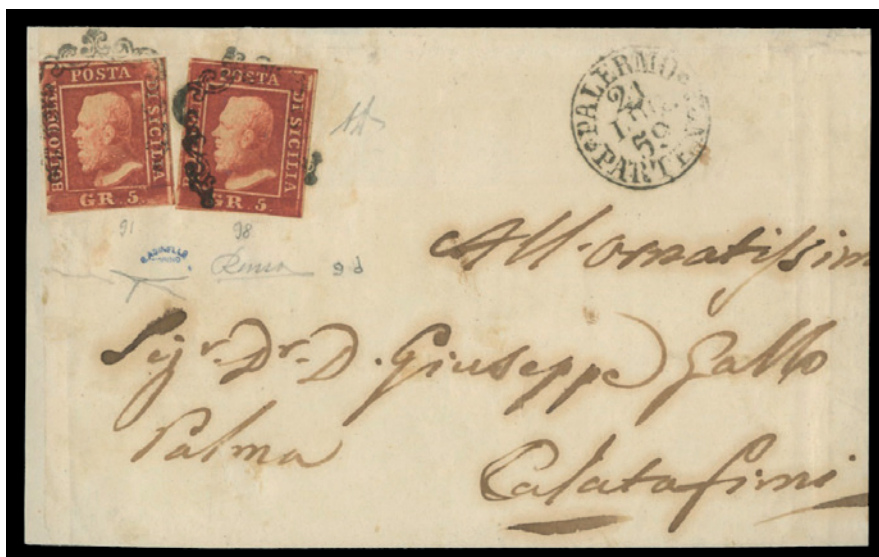 POSTA
BOLLO DELLA
DI SICILIA
GR. 5.
POSTA
DI SICILIA
GR. 5.
PALERMO
21
59
PARTENZA
91
98
9d
All'ornatissim
Sigr. Dr. D. Giuseppe Gallo
Palma
Calatafimi